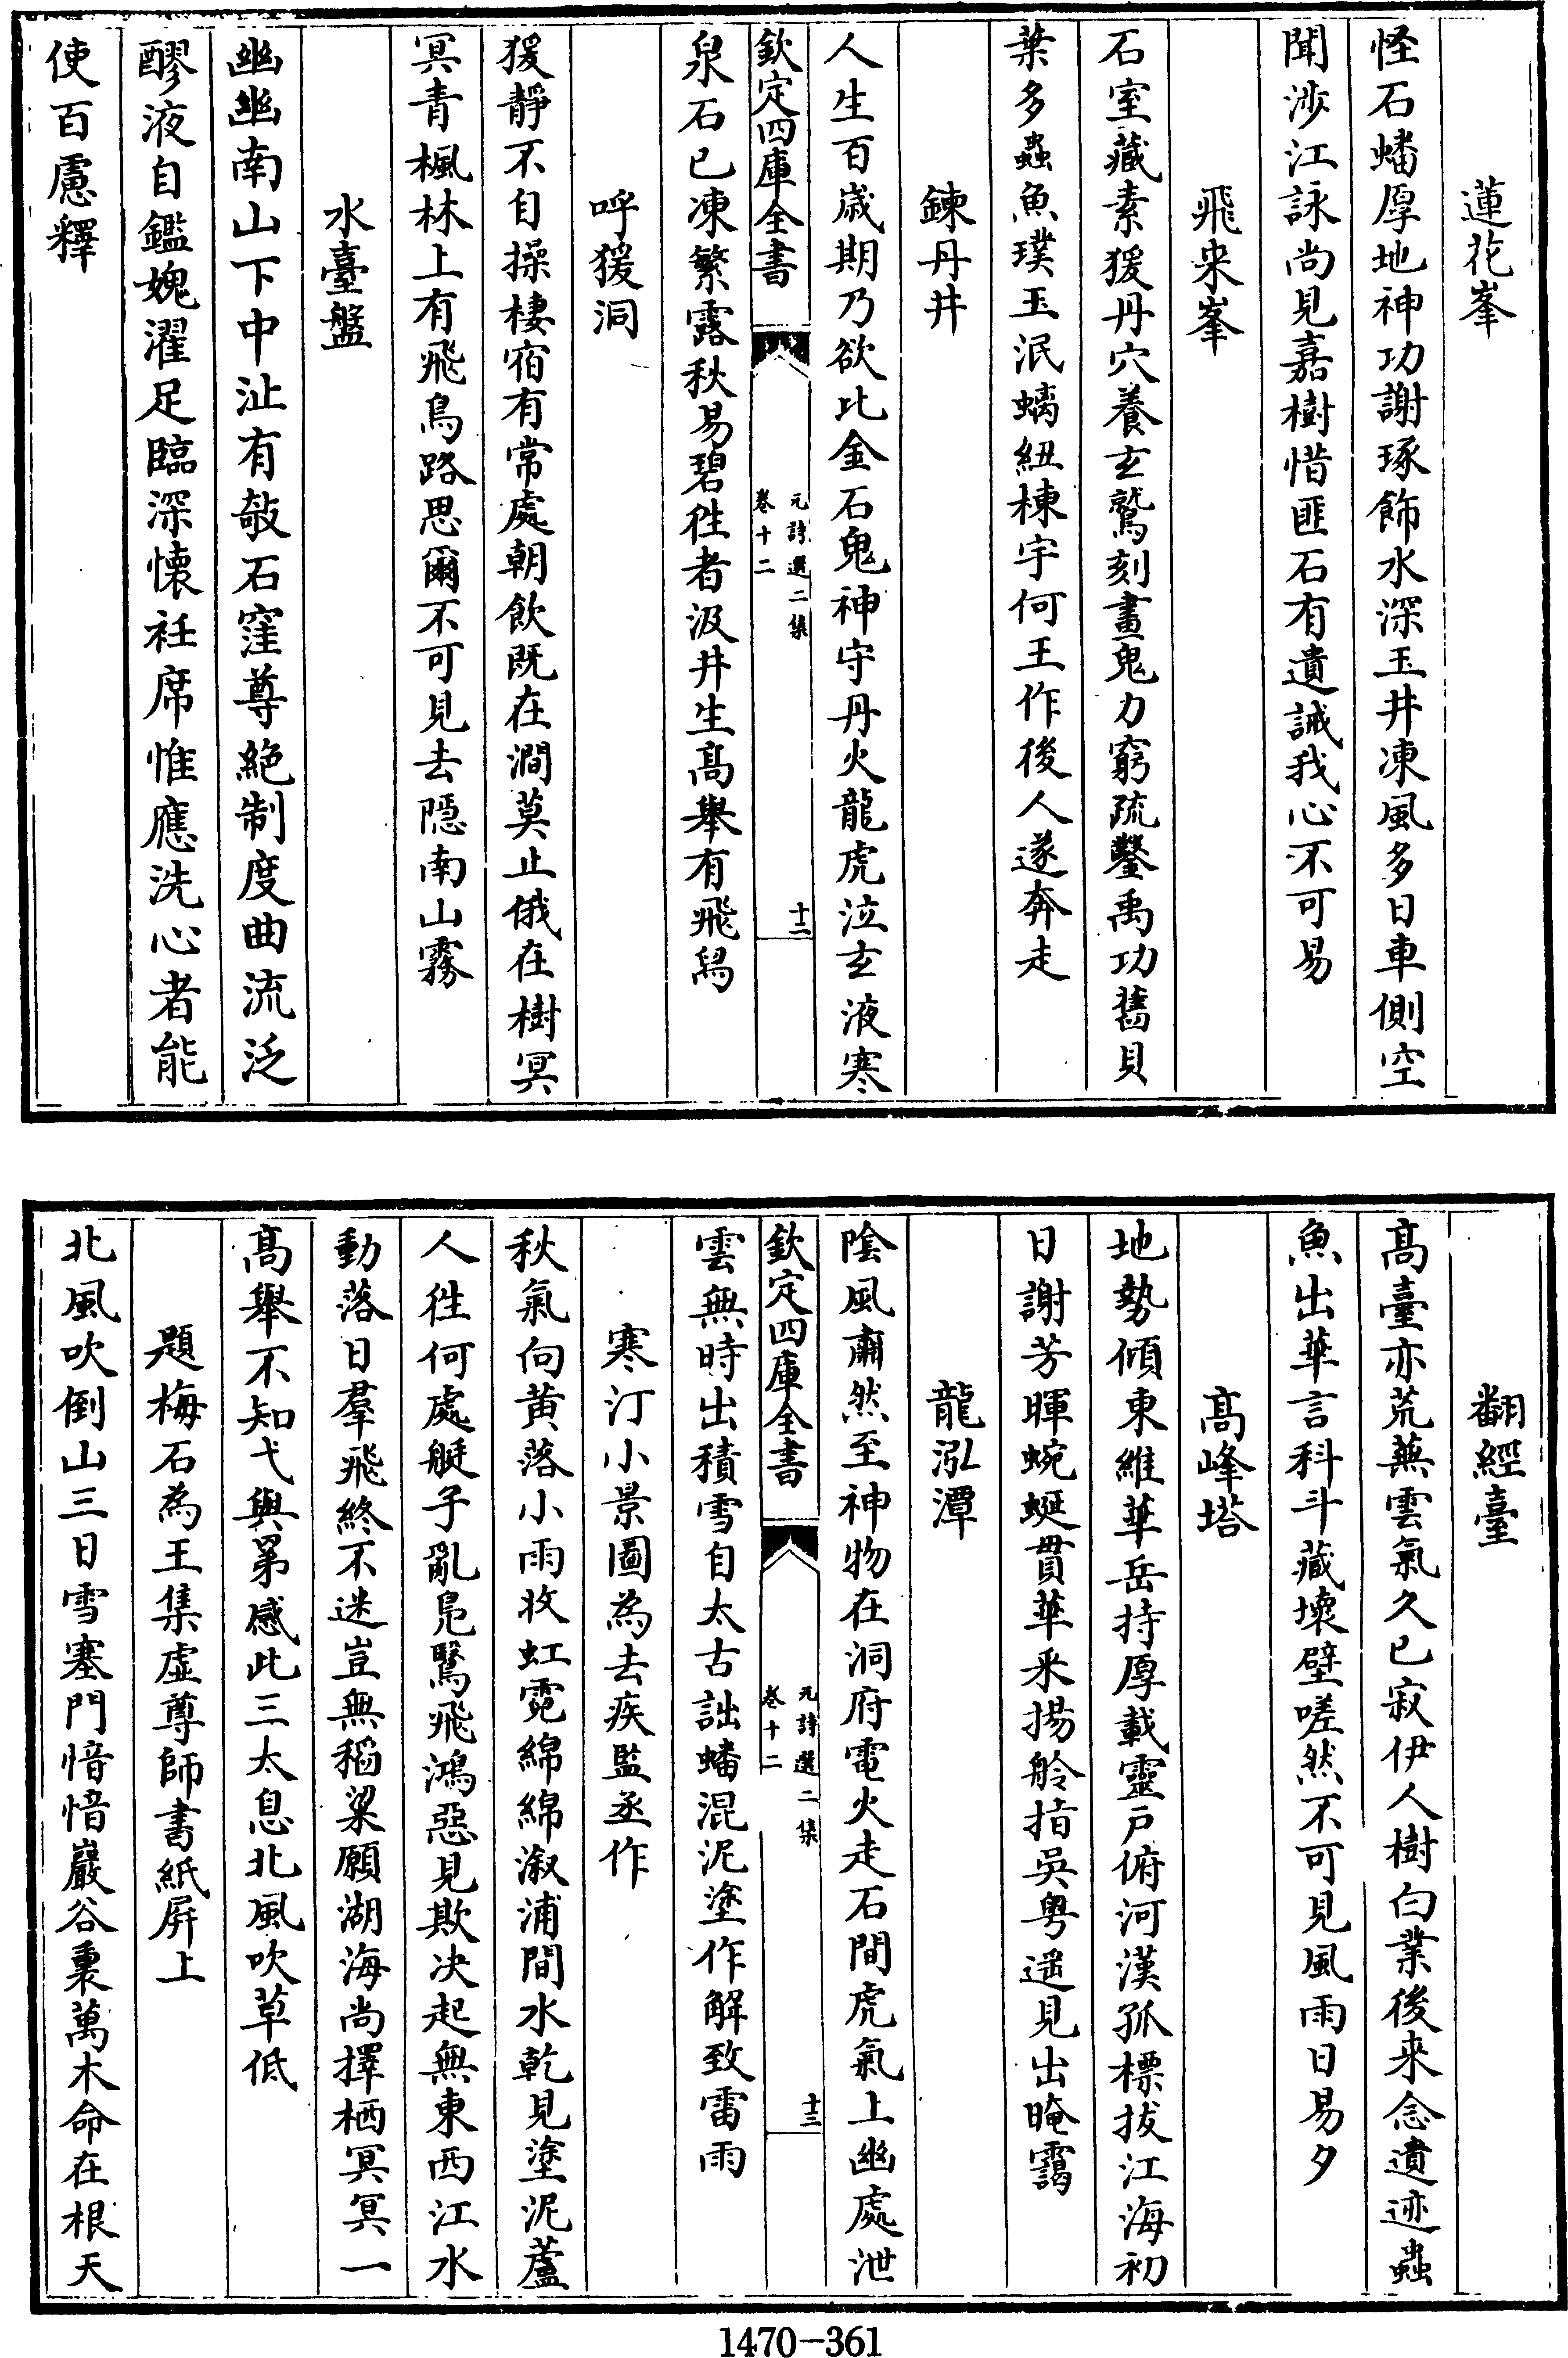 蓮花峯
怪石蟠厚地神功謝琢飾水深玉井凍風多日車側空
聞渉江詠尚見嘉樹惜匪石有遺誡我心不可易
飛来峯
石室藏素猨丹穴養玄鷲刻畫鬼力窮疏鑿禹功舊貝
葉多蟲魚璞玉泯螭紐棟宇何王作後人遂奔走
鍊丹井
人生百歳期乃欲比金石鬼神守丹火龍虎泣玄液寒
欽定四庫全書
元詩選二集
卷十二
十二
泉石已凍繁露秋易碧徃者汲井生髙舉有飛舄
呼猨洞
猨靜不自操棲宿有常處朝飲既在澗莫止俄在樹冥
冥青楓林上有飛鳥路思爾不可見去隠南山霧
水臺盤
幽幽南山下中沚有欹石窪尊絶制度曲流泛
醪液自鑑媿濯足臨深懐衽席惟應洗心者能
使百慮釋
翻經臺
髙臺亦荒蕪雲氣久已寂伊人樹白業後來念遺迹蟲
魚出華言科斗藏壊壁嗟然不可見風雨日易夕
髙峰塔
地勢傾東維華岳持厚載靈戸俯河漢孤標拔江海初
日謝芳暉蜿蜒貫華采揚舲指吳粵遥見出晻靄
龍泓潭
陰風肅然至神物在洞府電火走石間虎氣上幽處泄
欽定四庫全書
元詩選二集
卷十二
十三
雲無時出積雪自太古詘蟠混泥塗作解致雷雨
寒汀小景圖為去疾監丞作
秋氣向黄落小雨收虹霓綿綿溆浦間水乾見塗泥蘆
人徃何處艇子亂鳬鷖飛鴻惡見欺决起無東西江水
動落日羣飛終不迷豈無稻粱願湖海尚擇栖冥冥一
髙舉不知弋與第感此三太息北風吹草低
題梅石為王集虚尊師書紙屏上
北風吹倒山三日雪塞門愔愔巖谷裏萬木命在根天
1470-361